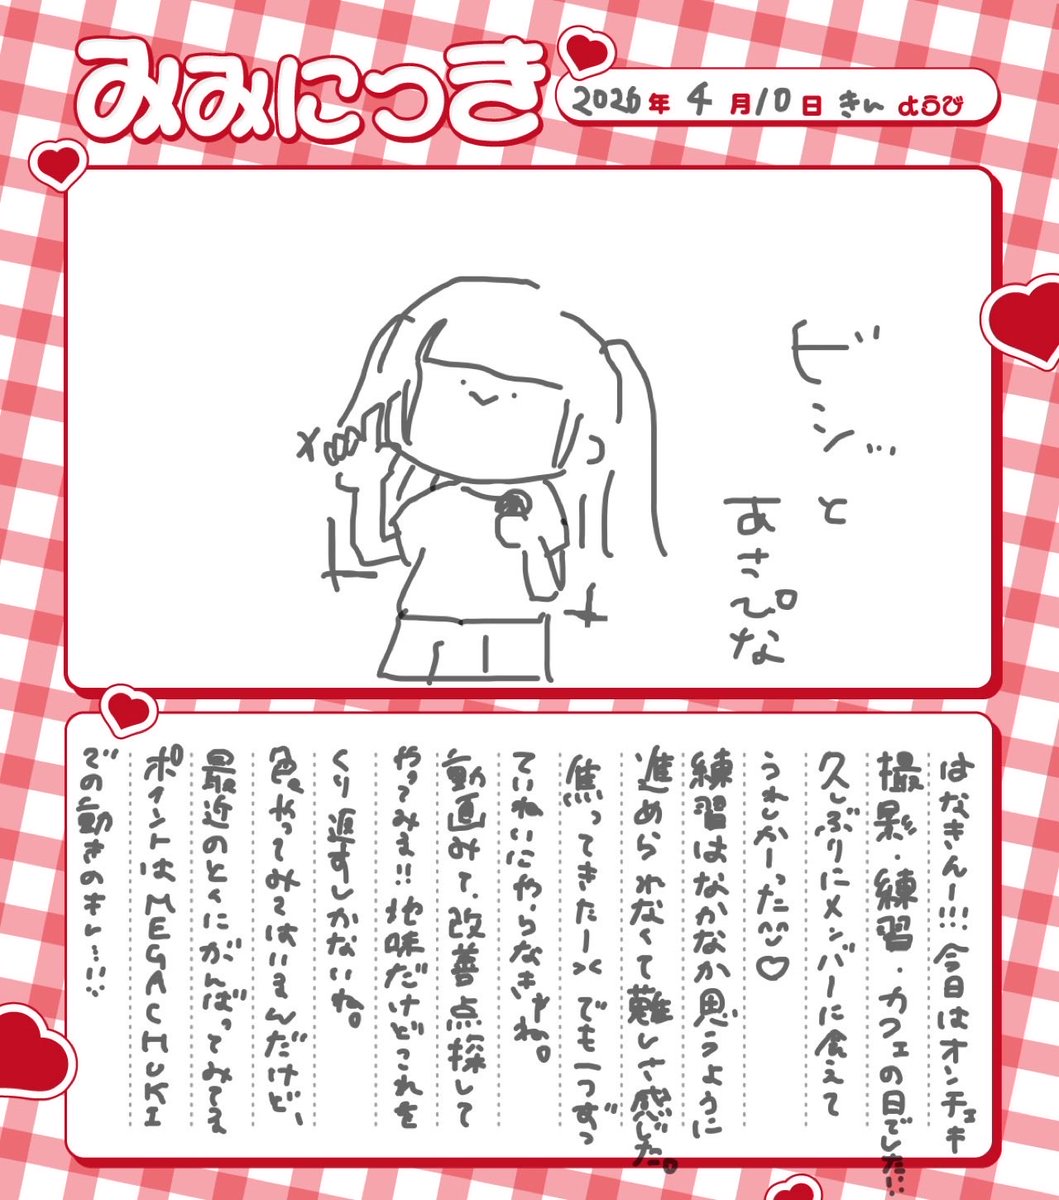 みみにっき
2026年 4月10日 きん ようび
ビシ…と
あさぴな
はなきんー!!! 今日はオンチェキ
撮影・練習・カフェの日でした!!
久しぶりにメンバーに会えて
うれしかーった^^♡
練習はなかなか思うように
進められなくて難しさ感じた。
焦ってきたー>< でも一つずつ
ていねいにやらなきゃね。
動画みて、改善点探して
やってみる!! 地味だけどこれを
くり返すしかないね。
色々やってみてはいるんだけど、
最近のとくにがんばってみてる
ポイントはMEGACHUKI
での動きのキレ…!!